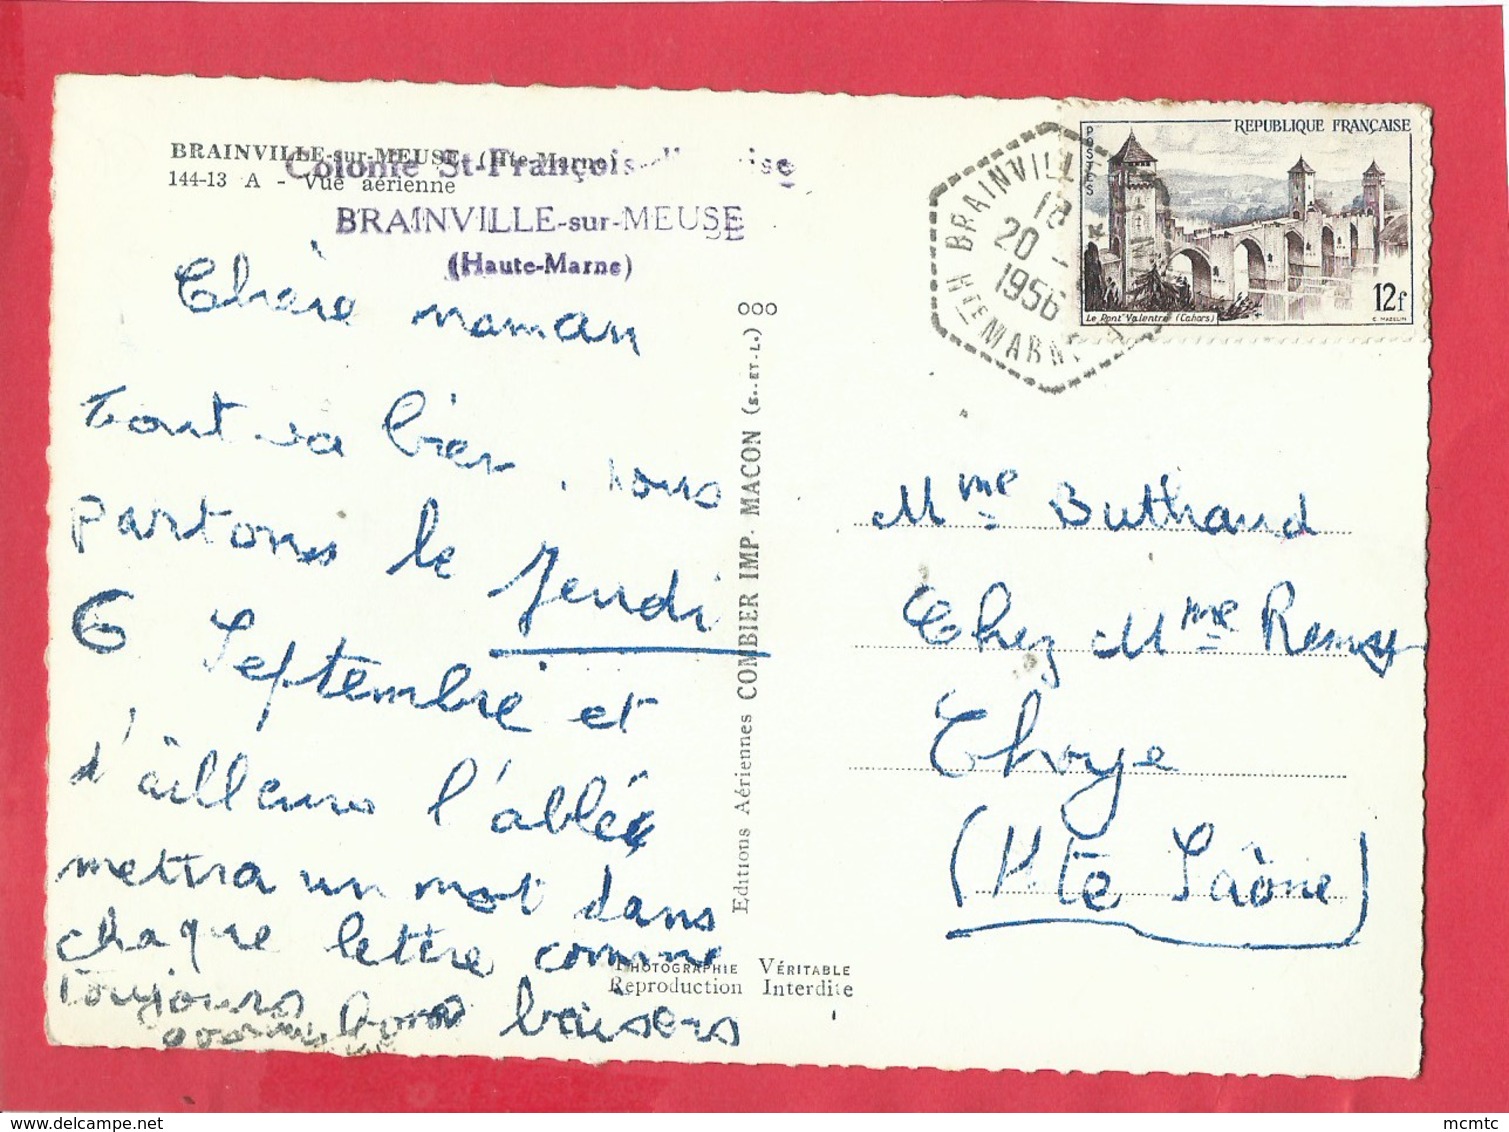 BRAINVILLE-sur-MEUSE (Hte-Marne)
144-13 A - Vue aérienne
Colonie St-François
BRAINVILLE-sur-MEUSE
(Haute-Marne)
Chère maman
tout va bien, nous
partons le jeudi
6 Septembre et
d'ailleurs l'abbé
mettra un mot dans
chaque lettre comme
toujours
bons baisers
Editions Aériennes COMBIER IMP. MACON (S.-ET-L.)
PHOTOGRAPHIE VÉRITABLE
Reproduction Interdite
BRAINVILLE
18
20 -
1956
Hte MARNE
POSTES
REPUBLIQUE FRANÇAISE
12f
Le Pont Valentré (Cahors)
C. MAZELIN
Mme Buthaud
Chez Mme Remy
Choye
(Hte Saône)
www.delcampe.net
mcmtc